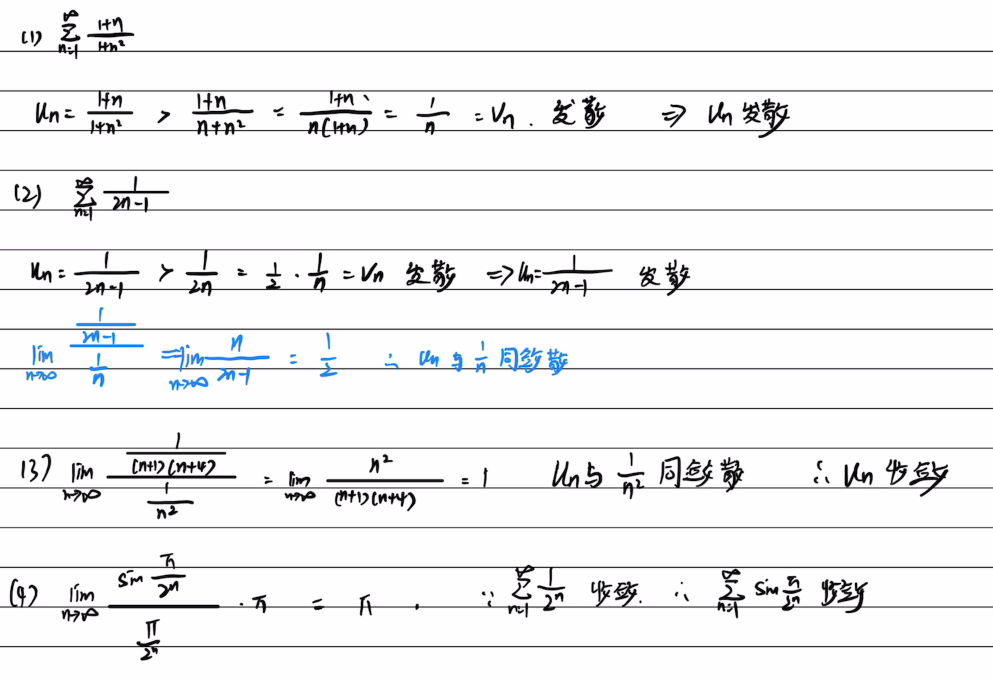 (1) ∑_{n=1}^{∞} \frac{1+n}{1+n²}
u_n = \frac{1+n}{1+n²} > \frac{1+n}{n+n²} = \frac{1+n}{n(1+n)} = \frac{1}{n} = V_n . 发散 ⇒ U_n 发散
(2) ∑_{n=1}^{∞} \frac{1}{2n-1}
u_n = \frac{1}{2n-1} > \frac{1}{2n} = \frac{1}{2} · \frac{1}{n} = V_n 发散 ⇒ u_n = \frac{1}{2n-1} 发散
\lim_{n→∞} \frac{\frac{1}{2n-1}}{\frac{1}{n}} = \lim_{n→∞} \frac{n}{2n-1} = \frac{1}{2} ∴ u_n 与 \frac{1}{n} 同敛散
(3) \lim_{n→∞} \frac{\frac{1}{(n+1)(n+4)}}{\frac{1}{n²}} = \lim_{n→∞} \frac{n²}{(n+1)(n+4)} = 1 U_n 与 \frac{1}{n²} 同敛散 ∴ U_n 收敛
(4) \lim_{n→∞} \frac{\sin \frac{π}{2^n}}{\frac{π}{2^n}} · π = π . ∵ ∑_{n=1}^{∞} \frac{1}{2^n} 收敛. ∴ ∑_{n=1}^{∞} \sin \frac{π}{2^n} 收敛